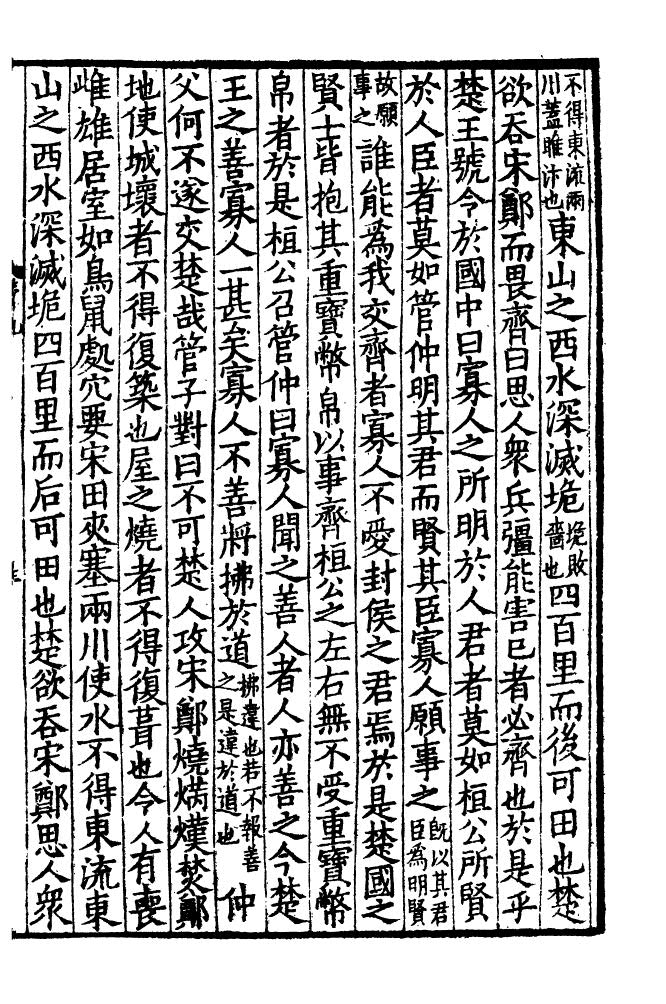 不得東流兩川蓋睢汴也東山之西水深滅垝垝敗牆也四百里而後可田也楚
欲吞宋鄭而畏齊曰思人衆兵彊能害己者必齊也於是乎
楚王號令於國中曰寡人之所明於人君者莫如桓公所賢
於人臣者莫如管仲明其君而賢其臣寡人願事之既以其君臣爲明賢
故願事之誰能爲我交齊者寡人不愛封侯之君焉於是楚國之
賢士皆抱其重寶幣帛以事齊桓公之左右無不受重寶幣
帛者於是桓公召管仲曰寡人聞之善人者人亦善之今楚
王之善寡人一甚矣寡人不善將拂於道拂違也若不報善之是違於道也仲
父何不遂交楚哉管子對曰不可楚人攻宋鄭燒焫熯焚鄭
地使城壞者不得復築也屋之燒者不得復葺也令人有喪
雌雄居室如鳥鼠處穴要宋田夾塞兩川使水不得東流東
山之西水深滅垝四百里而后可田也楚欲吞宋鄭思人衆